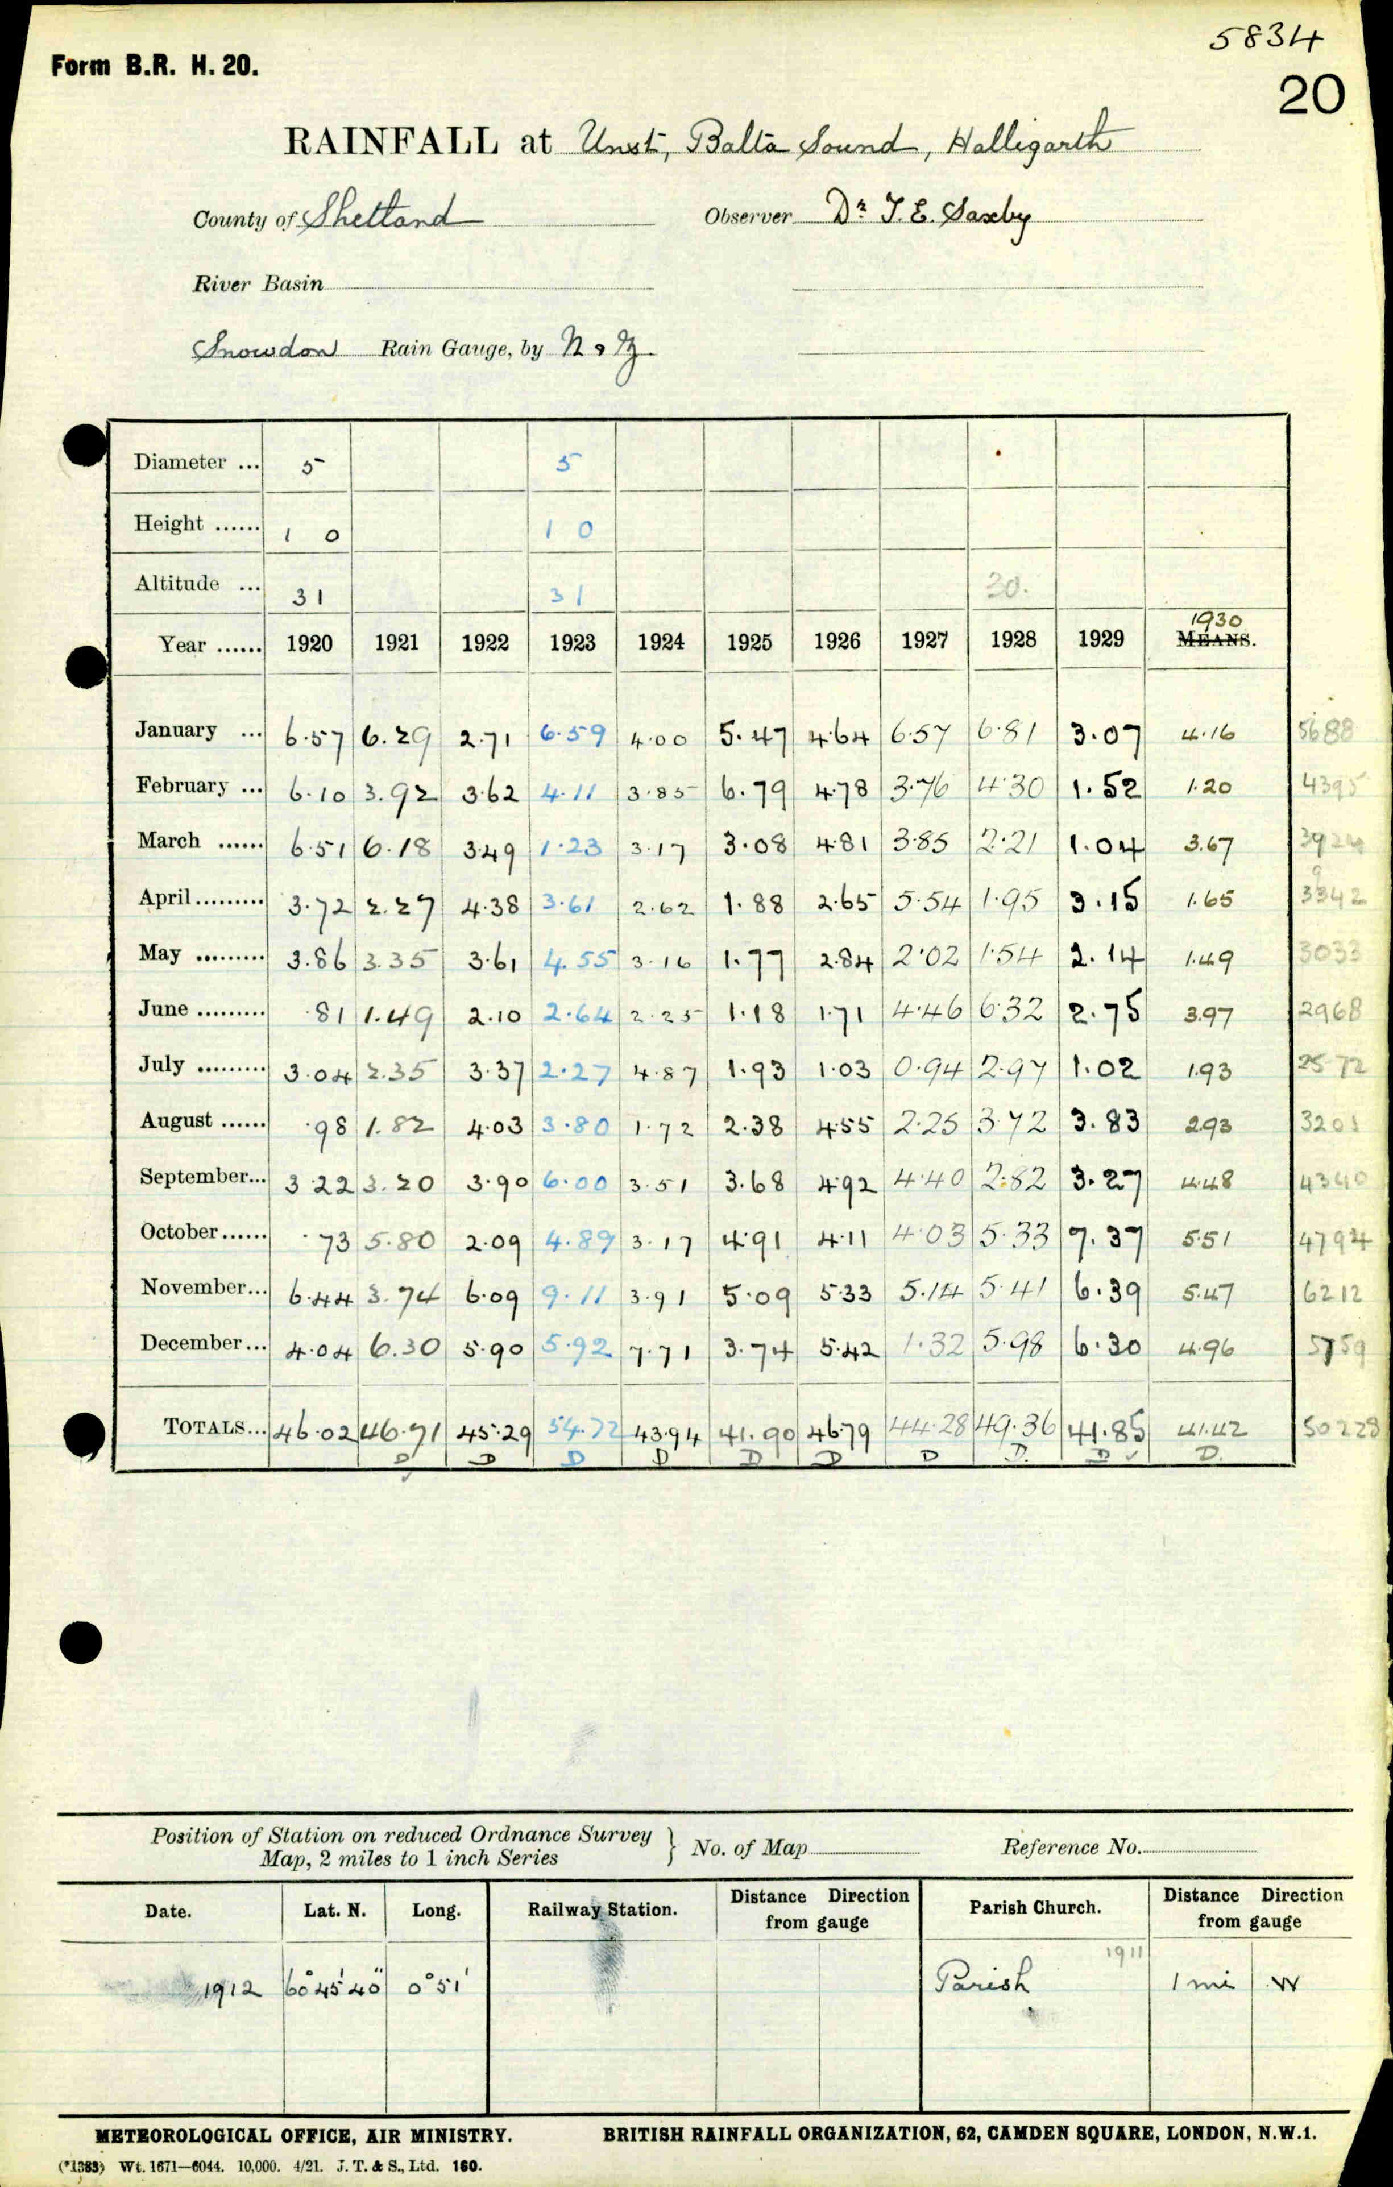 5834
Form B.R. H. 20.
20
RAINFALL at Unst, Balta Sound, Halligarth
County of Shetland Observer Dr T. E. Saxby
River Basin
Snowdon Rain Gauge, by N & Z
Diameter ... 5 5
Height ...... 1 0 1 0
Altitude ... 31 31 30.
1930
Year ...... 1920 1921 1922 1923 1924 1925 1926 1927 1928 1929 MEANS.
January ... 6.57 6.29 2.71 6.59 4.00 5.47 4.64 6.57 6.81 3.07 4.16 5688
February ... 6.10 3.92 3.62 4.11 3.85 6.79 4.78 3.76 4.30 1.52 1.20 4395
March ...... 6.51 6.18 3.49 1.23 3.17 3.08 4.81 3.85 2.21 1.04 3.67 3924
April ......... 3.72 2.27 4.38 3.61 2.62 1.88 2.65 5.54 1.95 3.15 1.65 3342
May ......... 3.86 3.35 3.61 4.55 3.16 1.77 2.84 2.02 1.54 2.14 1.49 3033
June ......... .81 1.49 2.10 2.64 2.25 1.18 1.71 4.46 6.32 2.75 3.97 2968
July ......... 3.04 2.35 3.37 2.27 4.87 1.93 1.03 0.94 2.97 1.02 1.93 2572
August ...... .98 1.82 4.03 3.80 1.72 2.38 4.55 2.25 3.72 3.83 2.93 3201
September... 3.22 3.20 3.90 6.00 3.51 3.68 4.92 4.40 2.82 3.27 4.48 4340
October...... .73 5.80 2.09 4.89 3.17 4.91 4.11 4.03 5.33 7.37 5.51 4794
November... 6.44 3.74 6.09 9.11 3.91 5.09 5.33 5.14 5.41 6.39 5.47 6212
December... 4.04 6.30 5.90 5.92 7.71 3.74 5.42 1.32 5.98 6.30 4.96 5759
TOTALS... 46.02 46.71 45.29 54.72 43.94 41.90 46.79 44.28 49.36 41.85 41.42 50228
D D D D D D D D D D
Position of Station on reduced Ordnance Survey
Map, 2 miles to 1 inch Series } No. of Map Reference No.
Date. Lat. N. Long. Railway Station. Distance Direction from gauge Parish Church. Distance Direction from gauge
1911
1912 60°45'40" 0°51' Parish 1 mi W
METEOROLOGICAL OFFICE, AIR MINISTRY. BRITISH RAINFALL ORGANIZATION, 62, CAMDEN SQUARE, LONDON, N.W.1.
(*1383) Wt. 1671—6044. 10,000. 4/21. J. T. & S., Ltd. 160.